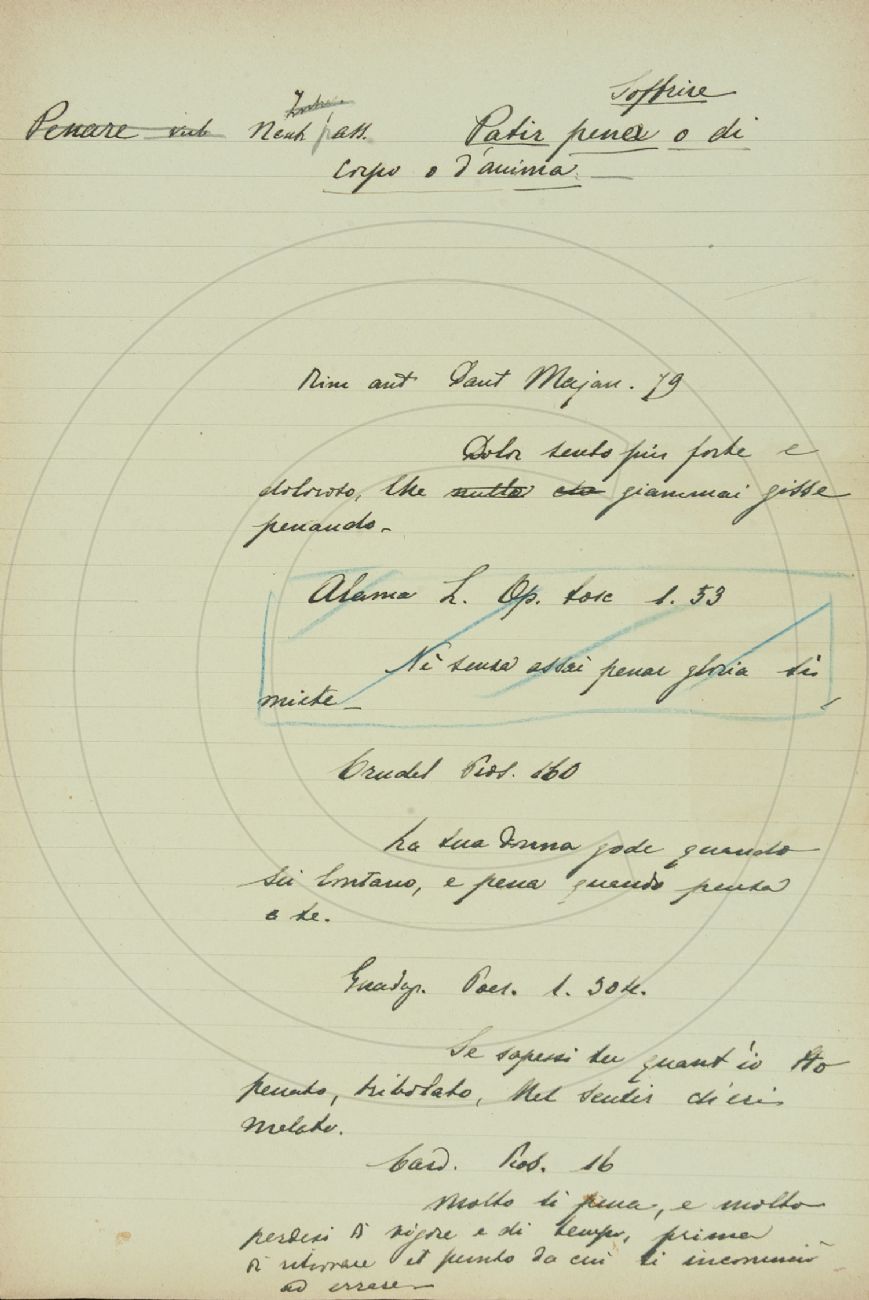 Soffrire
Penare Neut pass. Patir pena o di
corpo o d'anima. —
Rim ant Dant Majan. 79
Dolor sento più forte e
doloroso, Che nullo che giammai gisse
penando. —
Alama L. Op. tosc 1. 53
Nè senza assai penar gloria si
miete —
Crudel Rios. 160
La tua donna gode quando
sei lontano, e pena quando pensa
a te.
Guadagn. Poes. 1. 304.
Se sapessi tu quant'io Ho
penato, tribolato, Nel sentir ch'eri
melato.
Card. Pros. 16
Molto si pena, e molto
perdesi di vigore e di tempo, prima
di ritornare al punto da cui si incominciò
ad errare —